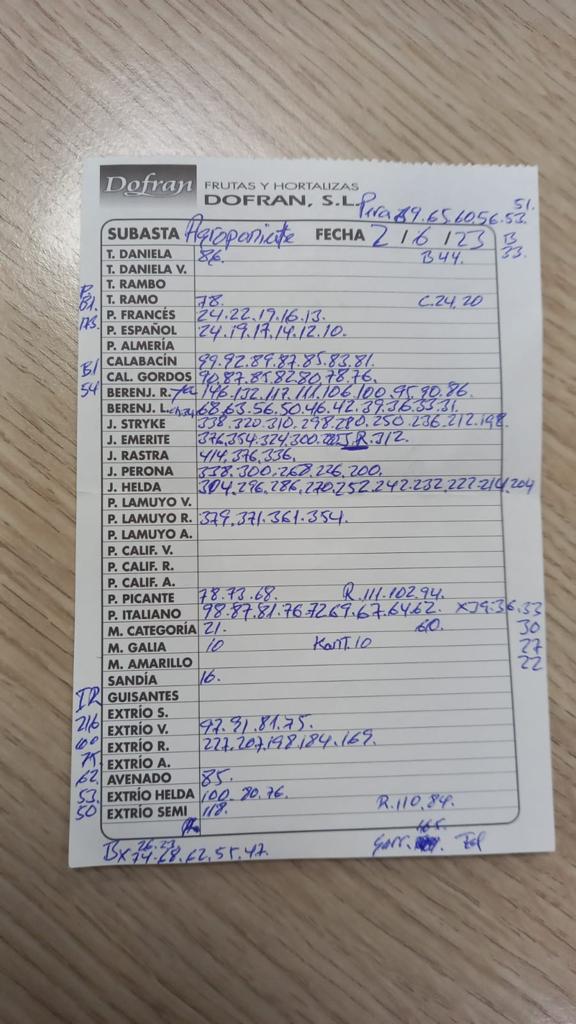 Dofran FRUTAS Y HORTALIZAS
DOFRAN, S.L.
51.
Pera 89.65.60.56.53.
SUBASTA Agroponiente FECHA 2/6/23 B
33.
T. DANIELA 86. B44.
T. DANIELA V.
T. RAMBO
T. RAMO 78. C.24.20
P. FRANCÉS 24.22.19.16.13.
P. ESPAÑOL 24.19.17.14.12.10.
P. ALMERÍA
CALABACÍN 99.92.89.87.85.83.81.
CAL. GORDOS 90.87.85.82.80.78.76.
54 BERENJ. R. 146.132.117.111.106.100.95.90.86.
BERENJ. L. 68.63.56.50.46.42.39.36.33.31.
J. STRYKE 338.320.310.298.280.250.236.212.198.
J. EMERITE 376.354.324.300. J.R.312.
J. RASTRA 414.376.336.
J. PERONA 338.300.268.226.200.
J. HELDA 304.296.286.270.252.242.232.222.214.204
P. LAMUYO V.
P. LAMUYO R. 379.371.361.354.
P. LAMUYO A.
P. CALIF. V.
P. CALIF. R.
P. CALIF. A.
P. PICANTE 78.73.68. R.111.102.94.
P. ITALIANO 98.87.81.76.72.69.67.64.62. X39.36.33
M. CATEGORÍA 21. 60. 30
M. GALIA 10 Kant.10 27
M. AMARILLO 22
SANDÍA 16.
GUISANTES
216 EXTRÍO S.
EXTRÍO V. 97.91.81.75.
100 EXTRÍO R. 227.207.198.184.169.
75 EXTRÍO A.
62 AVENADO 85.
53 EXTRÍO HELDA 100.80.76.
50 EXTRÍO SEMI 118. R.110.84.
26.23
BX74.68.62.55.47.